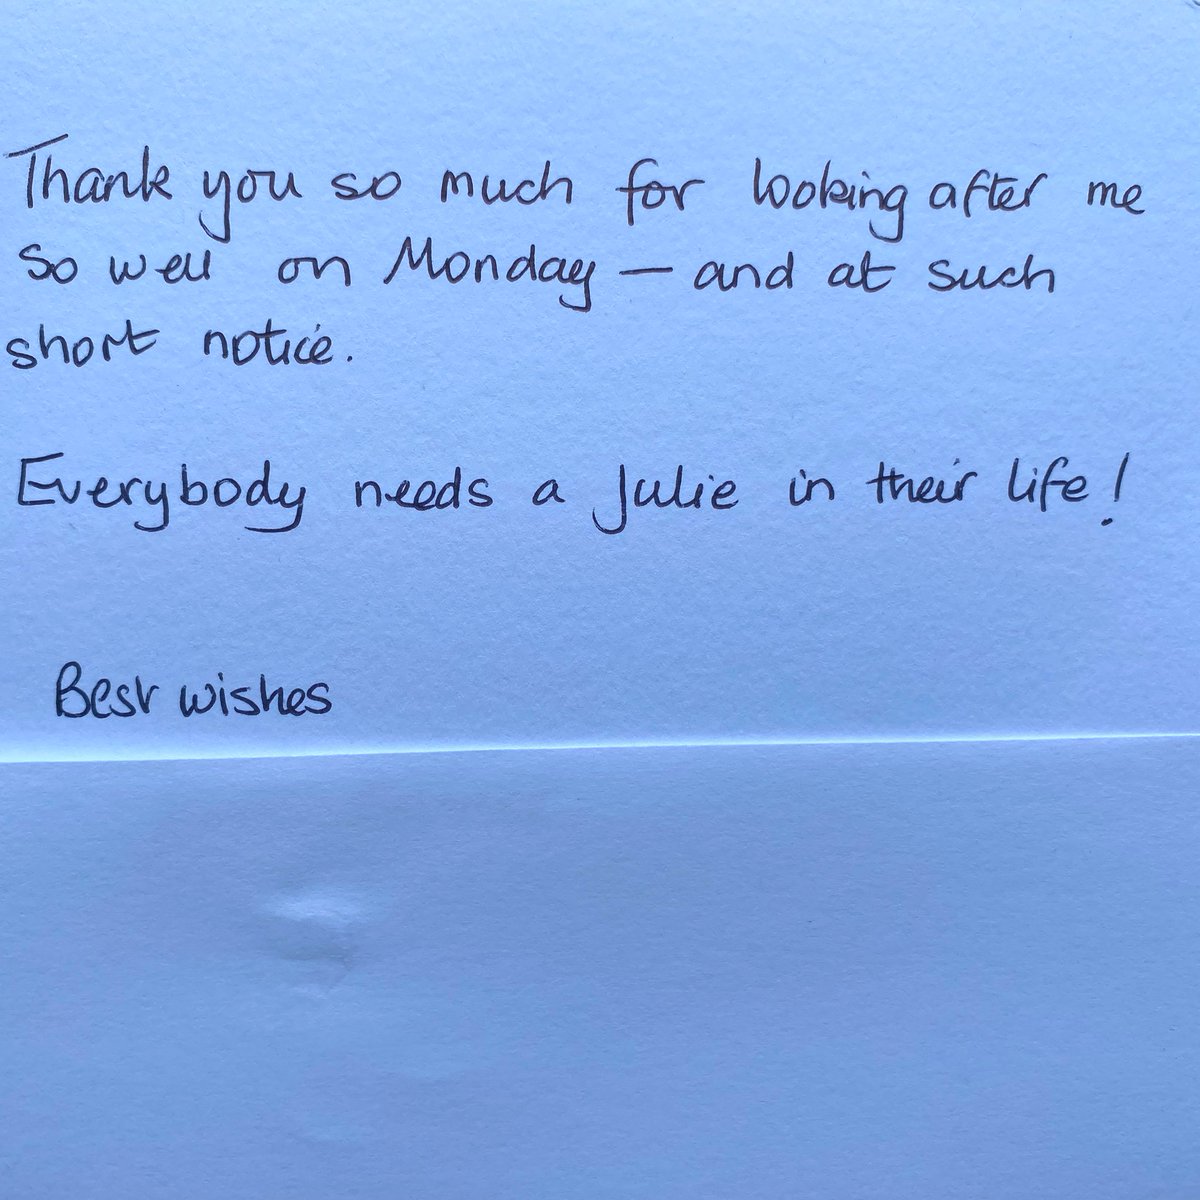 Thank you so much for looking after me
so well on Monday — and at such
short notice.
Everybody needs a Julie in their life!
Best wishes